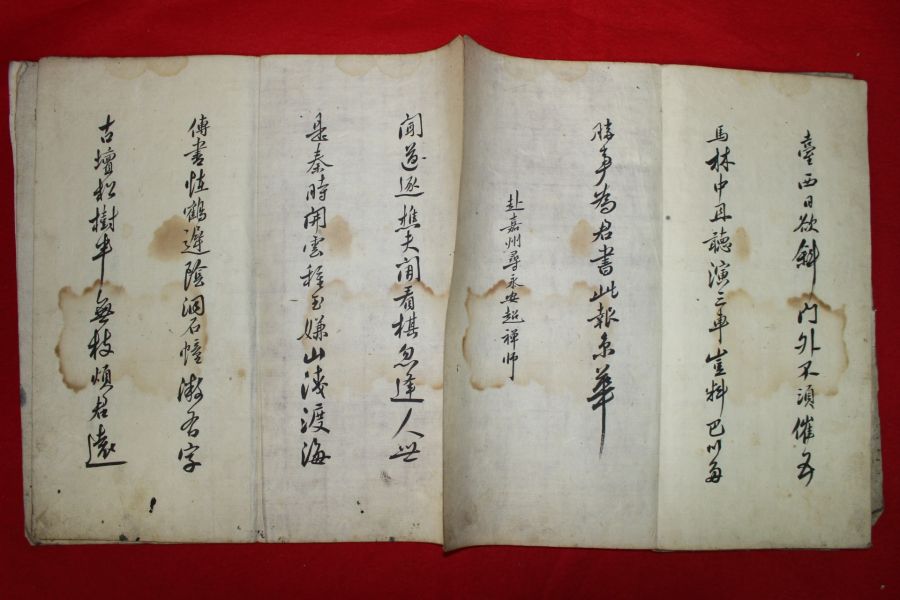 臺西日欲斜門外不須催五
馬林中且聽演三車豈料巴川多
勝事為君書此報京華
赴嘉州尋永安超禪師
聞道逐樵夫閒看棋忽逢人世
是秦時開雲種玉嫌山淺渡海
傳書怪鶴遲陰洞石幢微有字
古壇松樹半無枝煩君遠